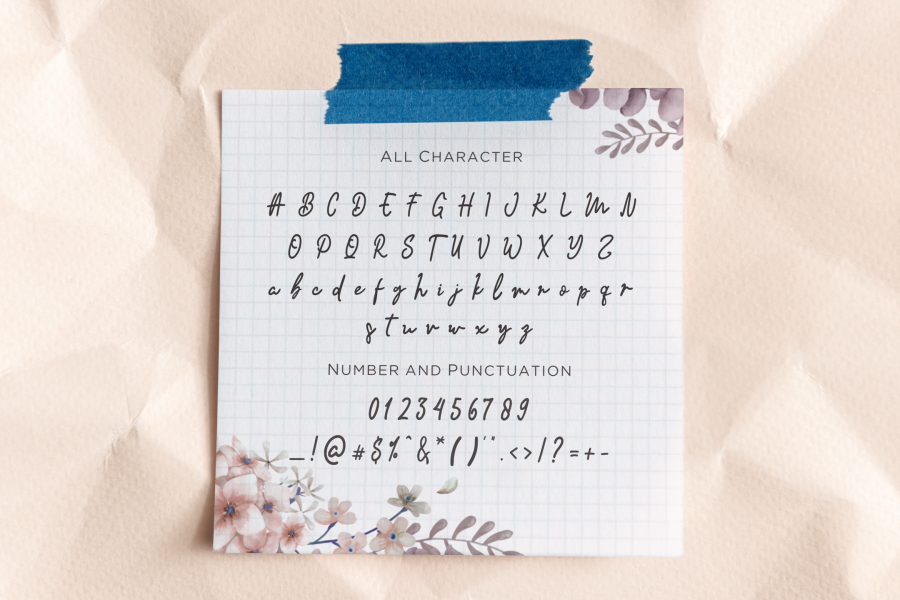 ALL CHARACTER
A B C D E F G H I J K L M N
O P Q R S T U V W X Y Z
a b c d e f g h i j k l m n o p q r
s t u v w x y z
NUMBER AND PUNCTUATION
0 1 2 3 4 5 6 7 8 9
_ ! @ # $ % ^ & * ( ) ' " . < > / ? = + -